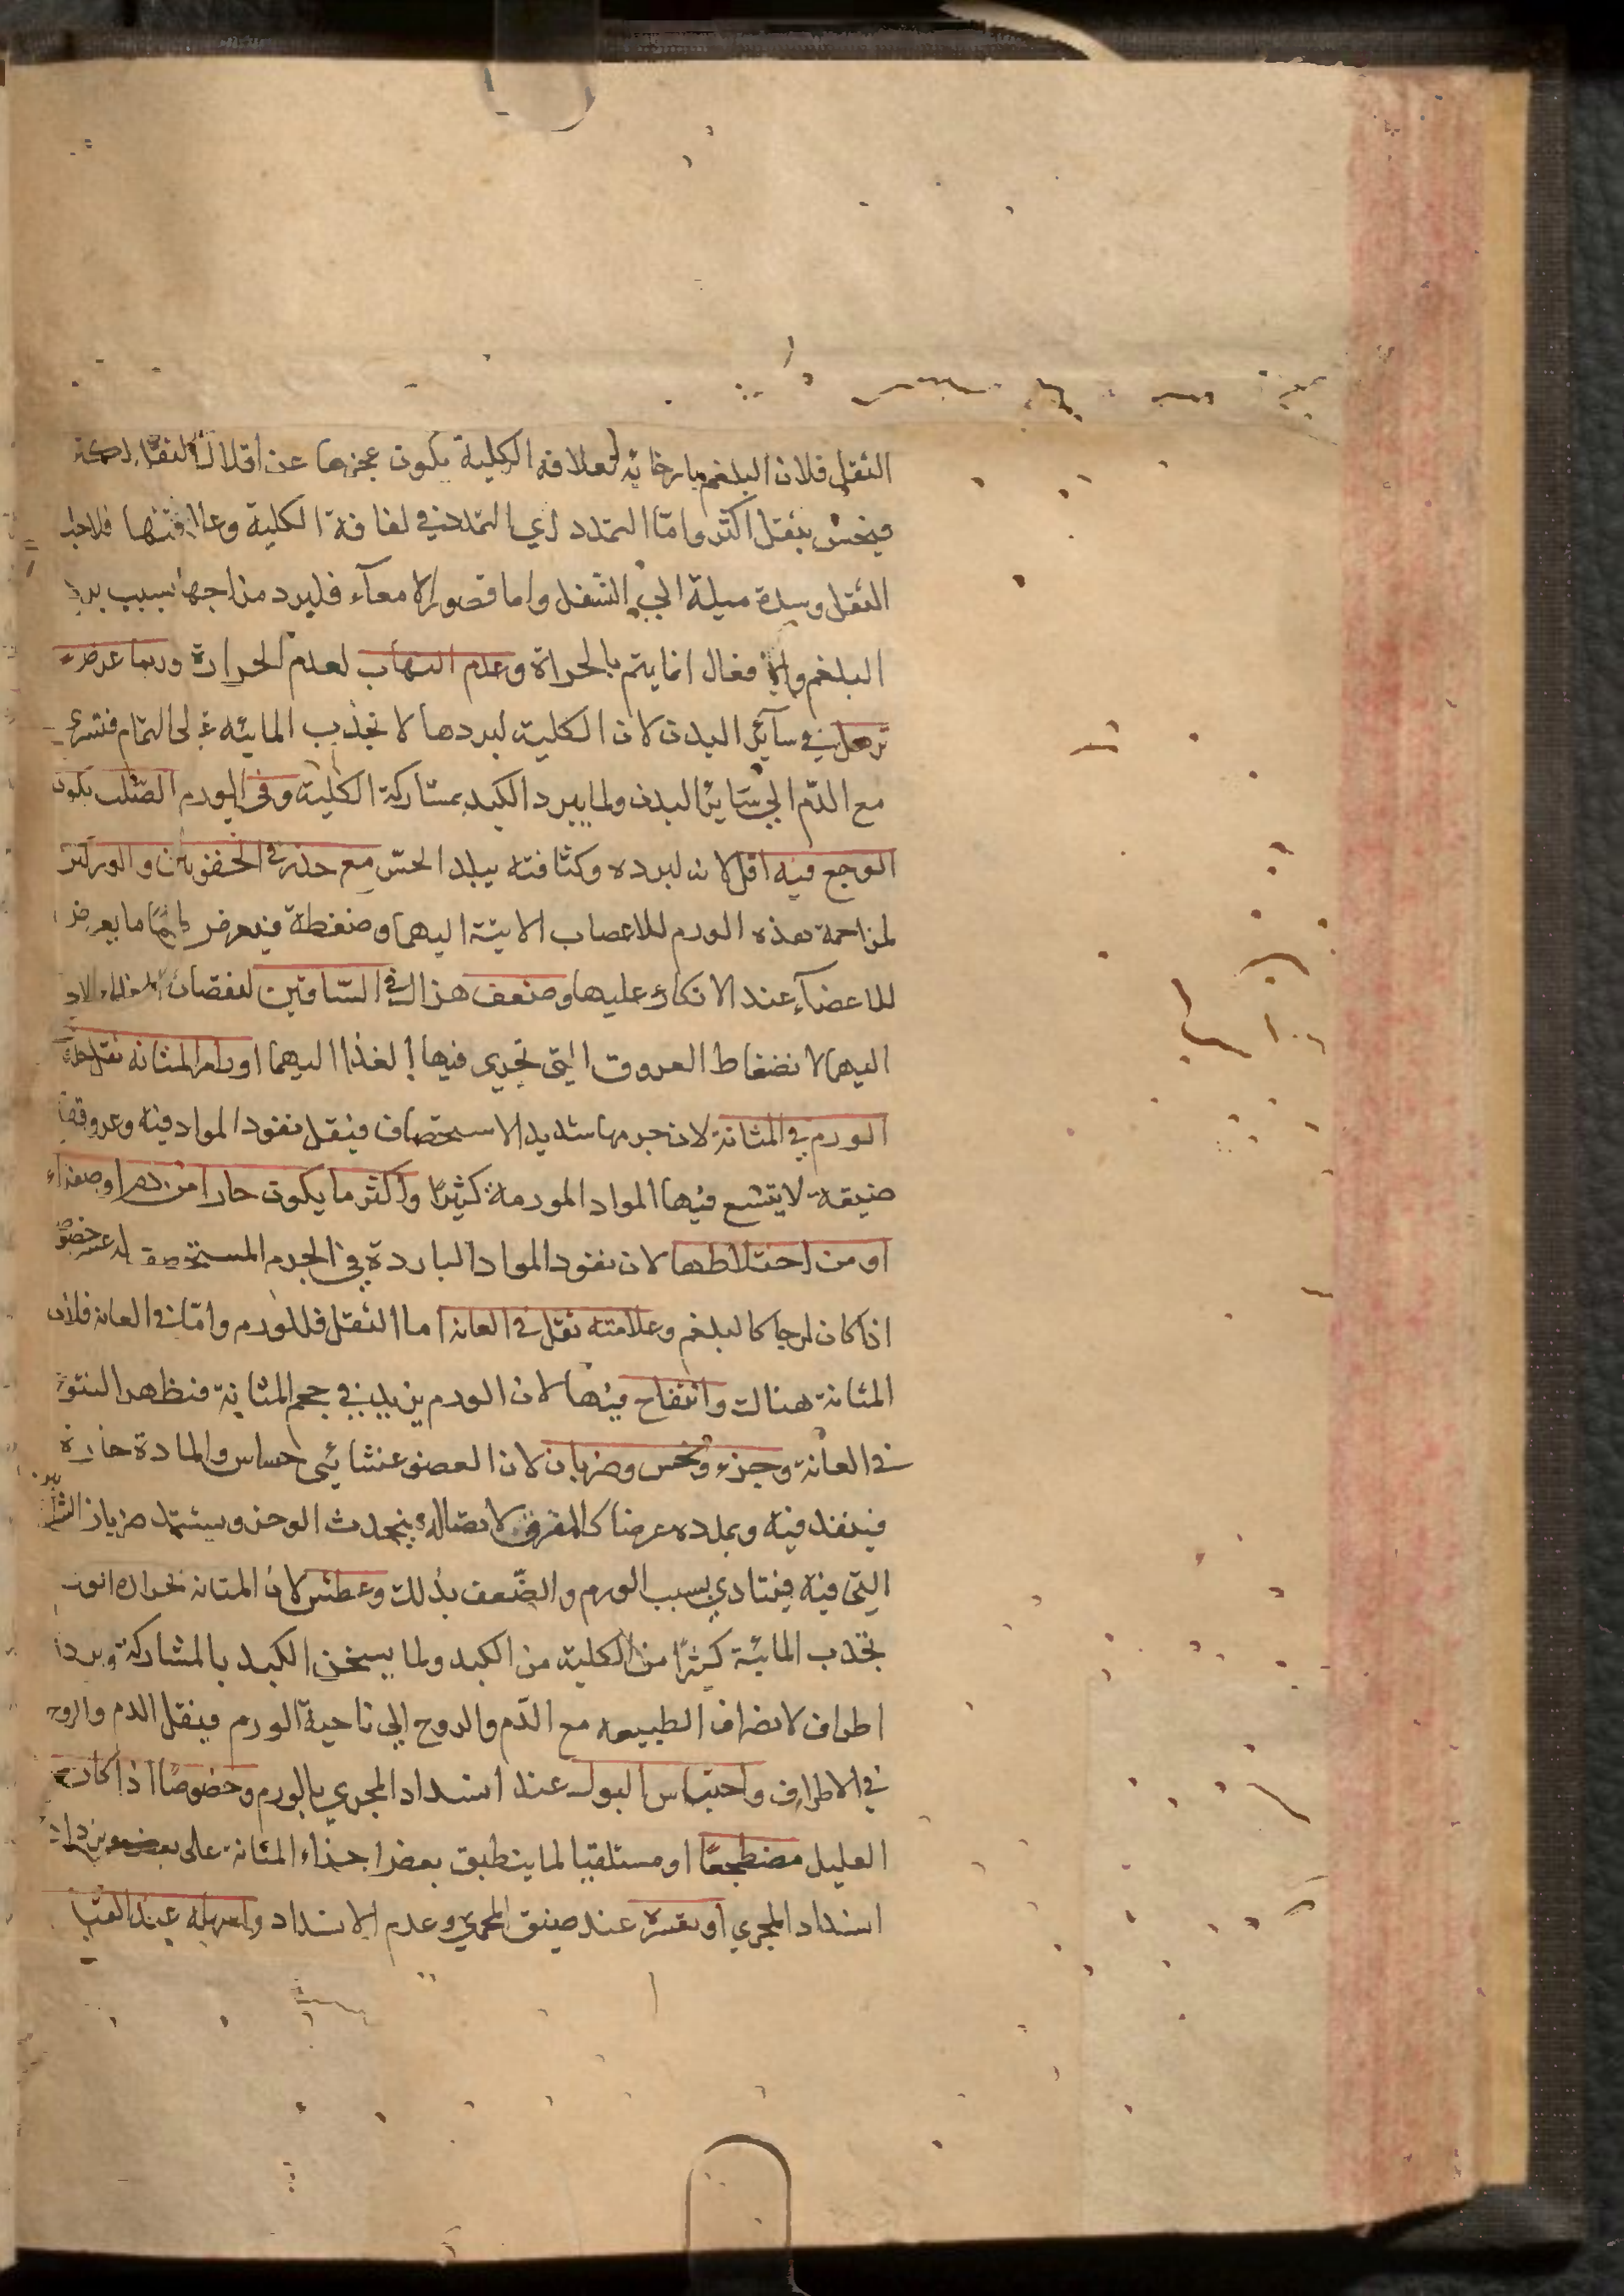 الثقل فلان البلغم بارخائه لعلاقه الكلية يكون عجزها عن اقلال الثقل
فيحس بثقل اكثر واما التمدد اي التمدد في لفافة الكلية وعلاقتها فلاجل
الثقل وشدة ميلة الي السفل واما قصور الامعآء فلبرد مزاجها بسبب برد
البلغم والافعال انما يتم بالحراة وعدم التهاب لعدم الحرارة وربما عرض
ترهل في سآئر البدن لان الكلية لبردها لا تجذب المائيه على التمام فتسري
مع الدم الي سَائر البدن ولما يبرد الكبد بمشاركة الكلية وفي الورم الصّلب يكون
الوجع فيه اقل لانه لبرده وكثافته يبلد الحسّ مع خدر في الحقوين والوركين
لمزاحمة هذه الورم للاعصاب الاتية اليهما وضغطة فيعرض لهما ما يعرض
للاعضآء عند الاتكاء عليها وضعف هزال في السّاقين لنقصان الغذاء
اليهما لانضغاط العروق التي تجري فيها الغذا اليهما اورام المثانه تقل
الورم في المثانة لان جرمها شديد الاستحصاف فيقل نفود المواد فيه وعروقها
ضيقة لا يتسع فيها المواد المورمة كثيرًا واكثر ما يكون حارا من دم او صفراء
او من اختلاطها لان نفود المواد الباردة في الجرم المستحصف عسر خصوصا
اذا كان لزجا كالبلغم وعلامته ثقل في العانه اما الثقل فللورم وامّا في العانه فلان
المثانة هناك وانتفاخ فيها لان الورم يزيد في حجم المثانة فيظهر النتوّ
في العانة وجزء ونخس وضربان لان العضو غشائي حساس والمادة حارة
فينفد فيه ويمدده عرضا كالمفرق لاتصاله فيحدث الوخز ويشتد ضربان الشرايين
التي فيه فيتادي بسبب الورم والضّعف بذلك وعطش لان المثانه
تجذب المائية كثيرًا من الكلية من الكبد ولما يسخن الكبد بالمشاركة وبرد
اطراف لانصراف الطبيعه مع الدّم والروح الي ناحية الورم فيقل الدم والروح
في الاطراف واحتباس البول عند انسداد المجري بالورم وخصوصًا اذا كان
العليل مضطجعًا او مستلقيا لما ينطبق بعض اجذاء المثانة على بعض فيزداد
انسداد المجري او تقسره عند ضيق المجري وعدم الانسداد واسهله عند القيا